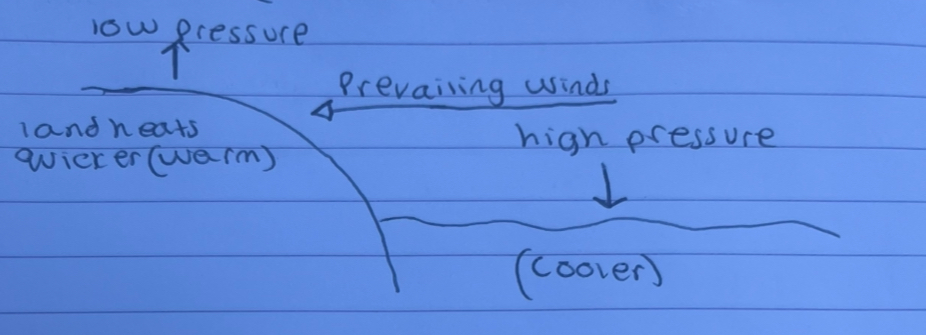 low pressure
Prevailing winds
high pressure
land heats
quicker (warm)
(cooler)